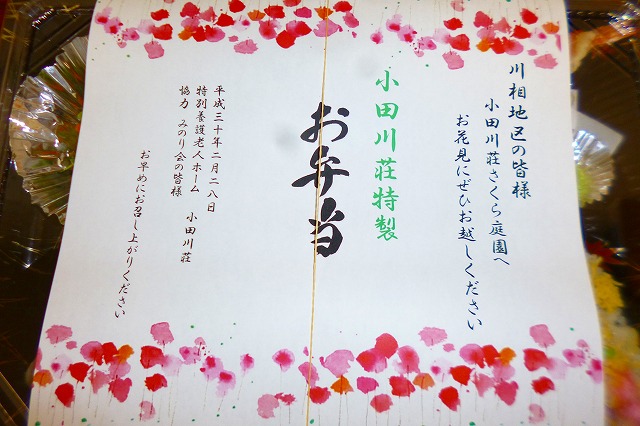 川相地区の皆様
小田川荘さくら庭園へ
お花見にぜひお越しください
小田川荘特製
お弁当
平成三十年二月二八日
特別養護老人ホーム 小田川荘
協力 みのり会の皆様
お早めにお召し上がりください